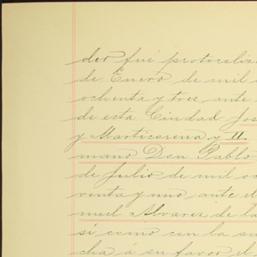 der fué protocoliz
de Enero de mil
ochenta y tres ante
de esta Ciudad Jos
y Marticorena y II.
mano Don Pablo
de Julio de mil o
venta y uno ante e
nuel Alvarez de la
sí como con la su
cha á su favor el